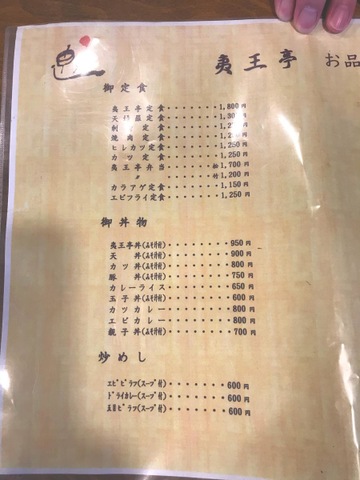 夷王亭 お品
御定食
夷王亭定食・・・・・・・・1,800円
天婦羅定食・・・・・・・・1,300円
刺 定食・・・・・・・・
焼肉定食・・・・・・・・
ヒレカツ定食・・・・・・・・1,250円
カツ 定食・・・・・・・・1,250円
夷王亭弁当・・・・・・・・松1,700円
〃 ・・・・・・・・竹1,200円
カラアゲ定食・・・・・・・・1,150円
エビフライ定食・・・・・・・・1,250円
御丼物
夷王亭丼(みそ汁付)・・・・・・・・950円
天 丼(みそ汁付)・・・・・・・・900円
カツ丼(みそ汁付)・・・・・・・・800円
豚 丼(みそ汁付)・・・・・・・・750円
カレーライス・・・・・・・・650円
玉子丼(みそ汁付)・・・・・・・・600円
カツカレー・・・・・・・・800円
エビカレー・・・・・・・・800円
親子丼(みそ汁付)・・・・・・・・700円
炒めし
エビピラフ(スープ付)・・・・・・・・600円
ドライカレー(スープ付)・・・・・・・・600円
五目ピラフ(スープ付)・・・・・・・・600円